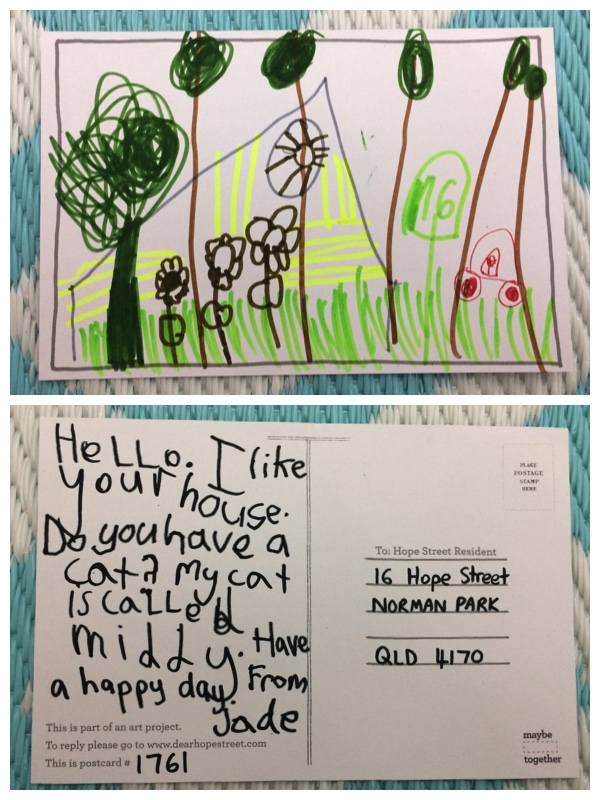 16
HeLLo. I like
your house.
Do you have a
cat? My cat
is caLLed
middy. Have
a happy day. From
Jade
This is part of an art project.
To reply please go to www.dearhopestreet.com
This is postcard # 1761
PLACE
POSTAGE
STAMP
HERE
To: Hope Street Resident
16 Hope Street
NORMAN PARK
QLD 4170
maybe
together